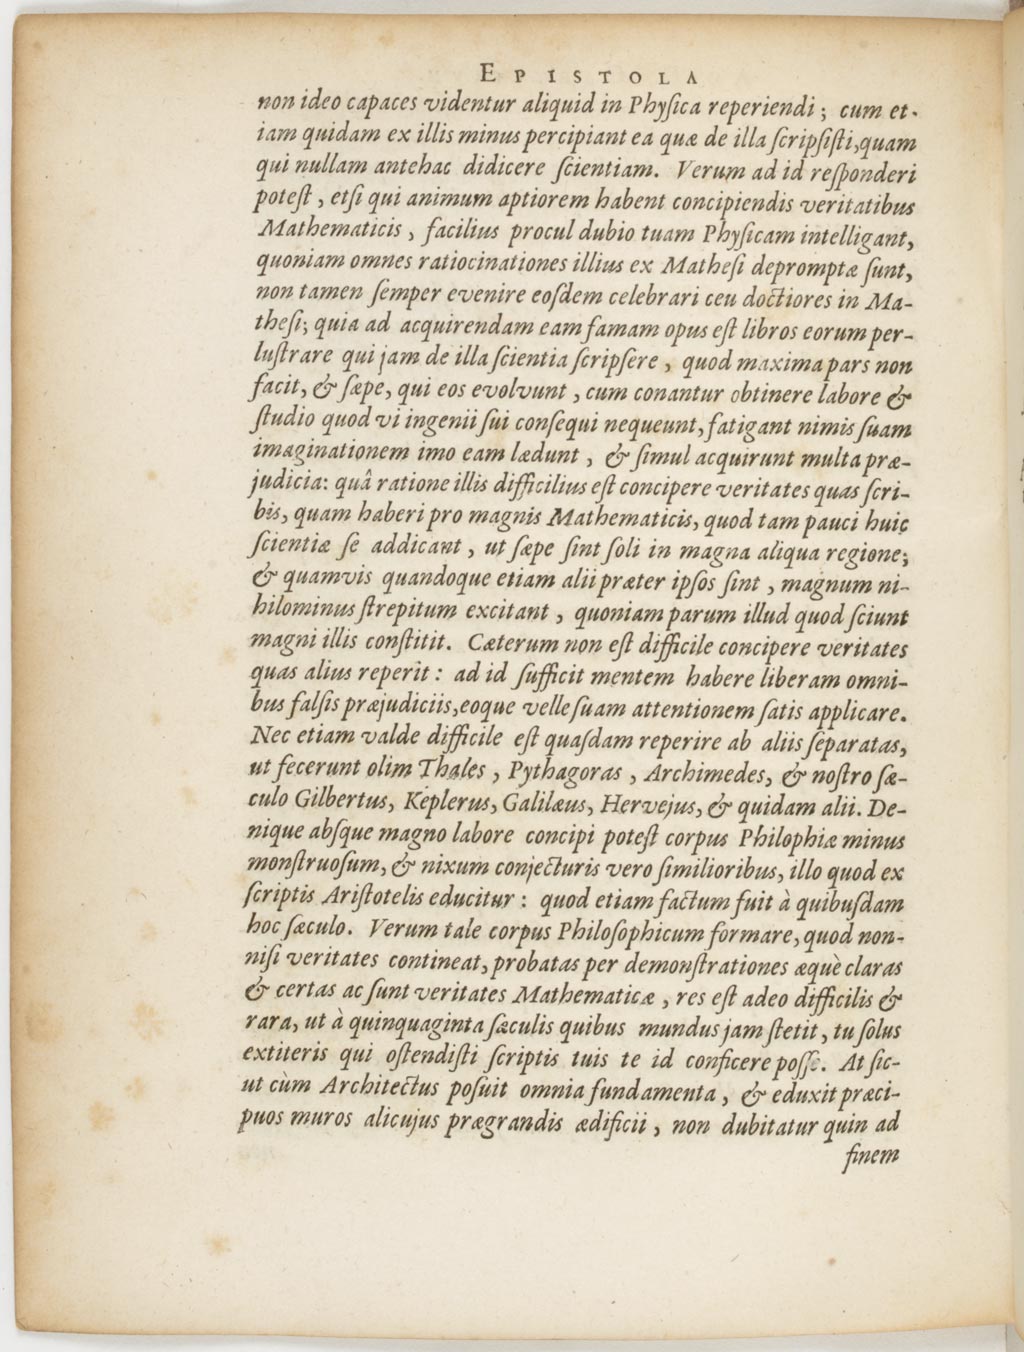 EPISTOLA
non ideo capaces videntur aliquid in Physica reperiendi; cum et-
iam quidam ex illis minus percipiant ea quæ de illa scripsisti, quam
qui nullam antehac didicere scientiam. Verum ad id responderi
potest, etsi qui animum aptiorem habent concipiendis veritatibus
Mathematicis, facilius procul dubio tuam Physicam intelligant,
quoniam omnes ratiocinationes illius ex Mathesi depromptæ sunt,
non tamen semper evenire eosdem celebrari ceu doctiores in Ma-
thesi; quia ad acquirendam eam famam opus est libros eorum per-
lustrare qui jam de illa scientia scripsere, quod maxima pars non
facit, & sæpe, qui eos evolvunt, cum conantur obtinere labore &
studio quod vi ingenii sui consequi nequeunt, fatigant nimis suam
imaginationem imo eam lædunt, & simul acquirunt multa præ-
judicia: quâ ratione illis difficilius est concipere veritates quas scri-
bis, quam haberi pro magnis Mathematicis, quod tam pauci huic
scientiæ se addicant, ut sæpe sint soli in magna aliqua regione;
& quamvis quandoque etiam alii præter ipsos sint, magnum ni-
hilominus strepitum excitant, quoniam parum illud quod sciunt
magni illis constitit. Cæterum non est difficile concipere veritates
quas alius reperit: ad id sufficit mentem habere liberam omni-
bus falsis præjudiciis, eoque velle suam attentionem satis applicare.
Nec etiam valde difficile est quasdam reperire ab aliis separatas,
ut fecerunt olim Thales, Pythagoras, Archimedes, & nostro sæ-
culo Gilbertus, Keplerus, Galilæus, Hervejus, & quidam alii. De-
nique absque magno labore concipi potest corpus Philophiæ minus
monstruosum, & nixum conjecturis vero similioribus, illo quod ex
scriptis Aristotelis educitur: quod etiam factum fuit à quibusdam
hoc sæculo. Verum tale corpus Philosophicum formare, quod non-
nisi veritates contineat, probatas per demonstrationes æquè claras
& certas ac sunt veritates Mathematicæ, res est adeo difficilis &
rara, ut à quinquaginta sæculis quibus mundus jam stetit, tu solus
extiteris qui ostendisti scriptis tuis te id conficere posse. At sic-
ut cùm Architectus posuit omnia fundamenta, & eduxit præci-
puos muros alicujus prægrandis ædificii, non dubitatur quin ad
finem